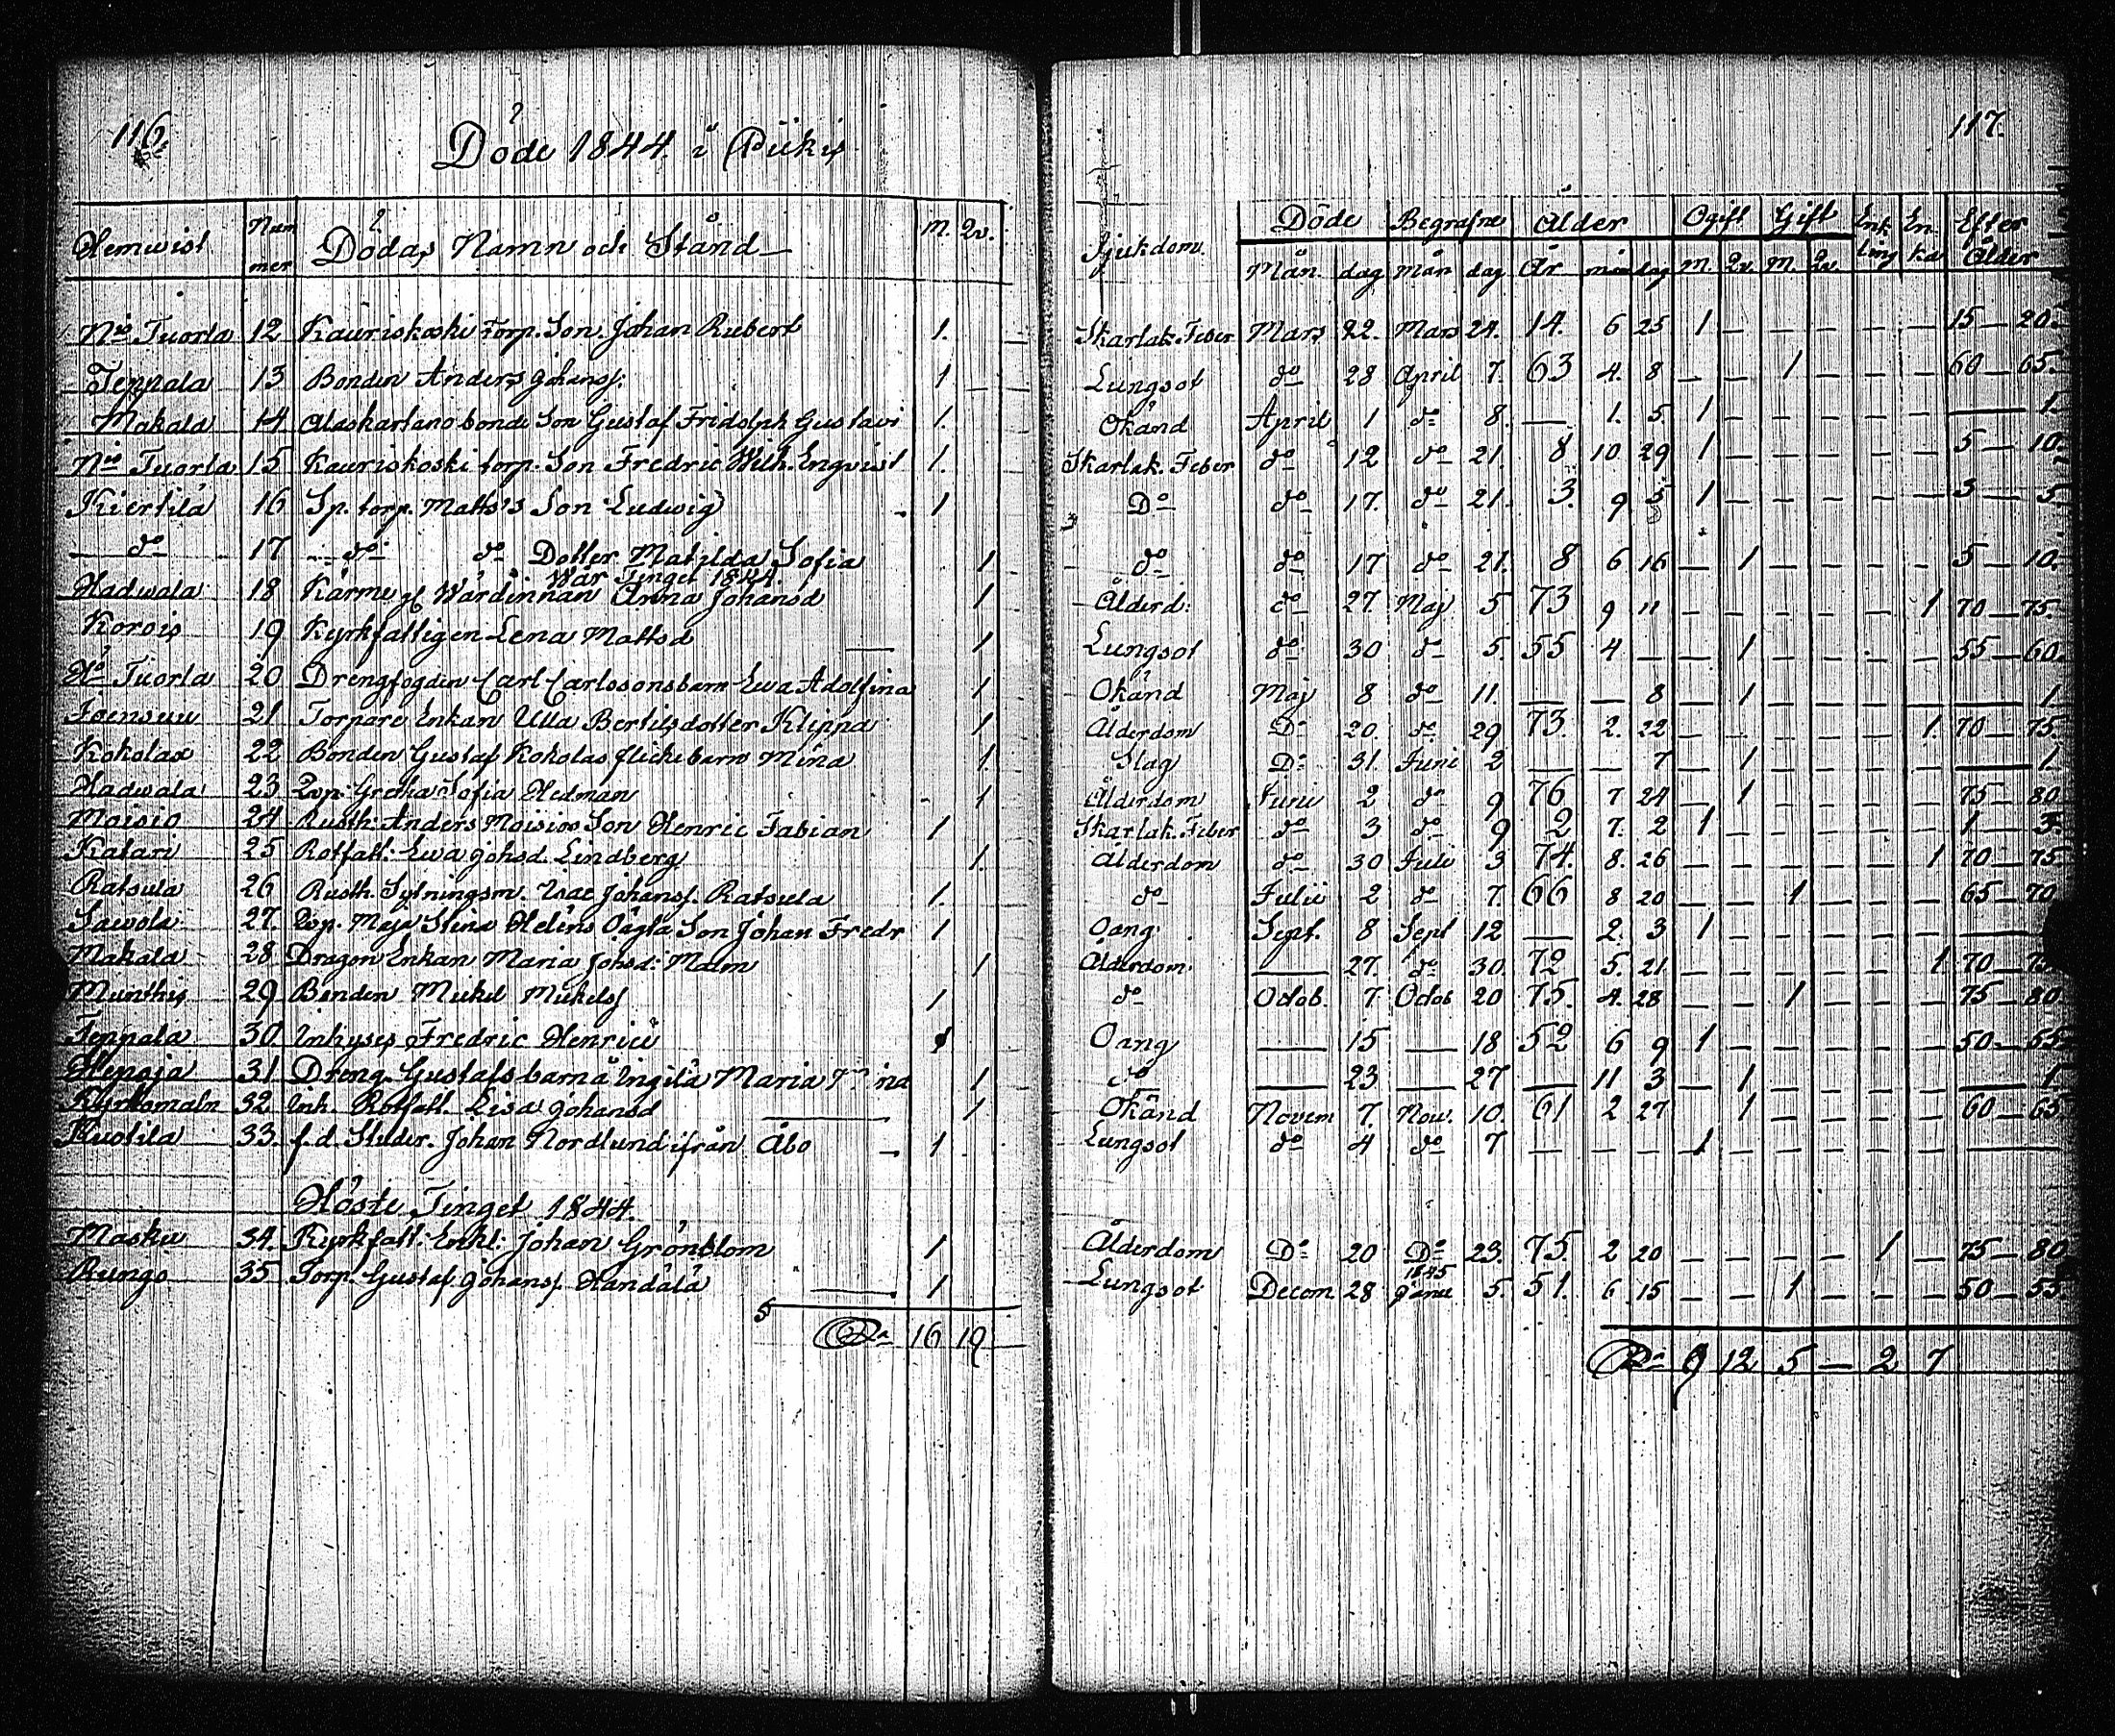 116.
Döde 1844. i Pikis
Hemwist Nummer Dödas Namn och Stånd M. Qv.
Nio Tuorla 12 Kauriskoski Torp. Son Johan Robert 1.
Teppala 13 Bonden Anders Johanss. 1
Makala 14. Alaskartano bonde Son Gustaf Fridolph Gustavs 1.
Nio Tuorla 15 Kauriskoski torp. Son Fredric Wilh. Enqvist 1.
Kiertilä 16 Sp. torp. Matts's Son Ludwig 1
do 17 do do Dotter Matilda Sofia 1
Wår Tinget 1844.
Hadwala 18 Wärdinnan Anna Johansd 1
Korois 19 Kyrkfattigen Lena Mattsd 1
Ho Tuorla 20 Drengfogden Carl Carlssons barn Ewa Adolfina 1.
Joensuu 21 Torpare Enkan Ulla Bertilsdotter Klippa 1
Kokolax 22 Bonden Gustaf Kokolas flickebarn Mina 1.
Hadwala 23 Qvp. Gretha Sofia Hedman 1
Moisio 24 Rusth. Anders Moisios Son Henric Fabian 1
Katari 25 Rotfatt. Ewa Johsd. Lindberg 1.
Ratsula 26 Rusth. Sytningsm. Isac Johanss. Ratsula 1.
Sawola 27. Qvp. Maja Stina Heléns Oägta Son Johan Fredr 1
Makala 28 Dragon Enkan Maria Johsd. Malm 1
Munthis 29 Bonden Mickel Mickelss 1
Teppala 30 Inhyses Fredric Henrics 1
Hengja 31 Dreng Gustafs barn Maria 1
32 Inh. Rotfatt. Lisa Johansd 1
33. f.d. Studer. Johan Nordlund ifrån Åbo 1
Höste Tinget 1844.
Masku 34. Kyrkfatt. Enkl. Johan Grönblom 1
Rungo 35 Torp. Gustaf Johanss. Handälä 1
16 19
117.
Sjukdom. Döde Begrafne Ålder Ogift Gift Enkling Enka Efter Ålder
Mån. dag mån dag År mån dag M. Qv. M. Qv.
Skarlak. Feber Mars 22. Mars 24. 14. 6 25 1 — — — — — 15 — 20.
Lungsot do 28 April 7. 63 4. 8 — — 1 — — — 60 — 65.
Okänd April 1 do 8. — 1. 5. 1 — — — — — — 1.
Skarlak. Feber do 12 do 21. 8 10 29 1 — — — — — 5 — 10.
Do do 17. do 21. 3. 9 5 1 — — — — — 3 — 5
do do 17 do 21. 8 6 16 — 1 — — — — 5 — 10.
Ålderd. do 27 Maj 5 73 9 11 — — — — — 1 70 — 75.
Lungsot do 30 do 5. 55 4 — — 1 — — — — 55 — 60.
Okänd Maj 8 do 11. — — 8 — 1 — — — — — 1.
Ålderdom Do 20. do 29 73. 2. 22 — — — — — 1. 70 — 75.
Slag Do 31. Juni 2 — — 7 — 1 — — — — — 1.
Ålderdom Junii 2 do 9 76 7 24 — 1 — — — — 75 — 80
Skarlak. Feber do 3 do 9 2 7. 2 1 — — — — — 1 — 3
Ålderdom do 30 Juli 3 74. 8. 26 — — — — — 1 70 — 75
do Julii 2 do 7. 66 8 20 — — 1 — — — 65 — 70
Oang Sept. 8 Sept 12 — 2. 3 1 — — — — — —
Ålderdom 27. do 30. 72 5. 21 — — — — — 1 70 —
do Octob. 7 Octob 20 75. 4. 28 — — 1 — — — 75 — 80
Oang — 15 — 18 52 6 9 1 — — — — — 50 — 55
do — 23 — 27 — 11 3 — 1 — — — — — 1
Okänd Novem 7. Nov. 10. 61 2 27 1 — — — — 60 — 65
Lungsot do 4 do 7 — — — 1 — — — — — —
Ålderdom Do 20 Do 23. 75. 2 20 — — — — 1 — 75 — 80
1845
Lungsot Decem 28 Janu 5. 51. 6 15 — — 1 — — — 50 — 55
9 12 5 — 2 7